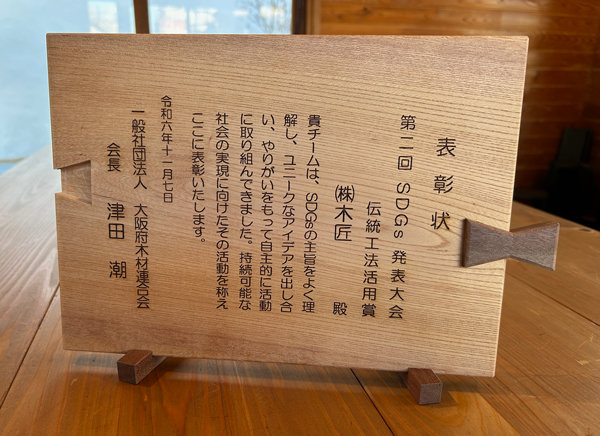 表彰状
第二回 SDGs 発表大会
伝統工法活用賞
㈱木匠 殿
貴チームは、SDGsの主旨をよく理
解し、ユニークなアイデアを出し合
い、やりがいをもって自主的に活動
に取り組んできました。持続可能な
社会の実現に向けたその活動を称え
ここに表彰いたします。
令和六年十二月七日
一般社団法人 大阪府木材連合会
会長 津田 潮